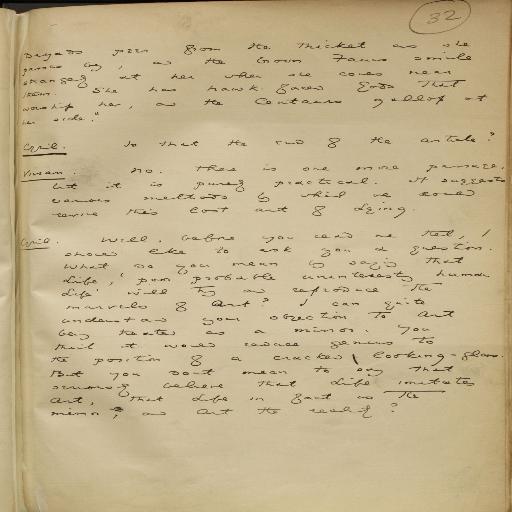 32
Dryads peer from the thicket as she
passes by, and the brown Fauns smile
strangely at her when she comes near
them. She has hawk-faced Gods that
worship her, and the Centaurs gallop at
her side."
Cyril. Is that the end of the article?
Vivian. No. There is one more passage,
but it is purely practical. It suggests
various methods by which we could
revive this lost art of Lying.
Cyril. Well, before you read me that, I
should like to ask you a question.
What do you mean by saying that
Life, 'poor, probable, uninteresting human
Life' will try and reproduce the
marvels of Art? I can quite
understand your objection to Art
being treated as a mirror. You
think it would reduce genius to
the position of a cracked looking-glass.
But you don't mean to say that
you seriously believe that Life imitates
Art, that Life in fact is the
mirror, and Art the reality?